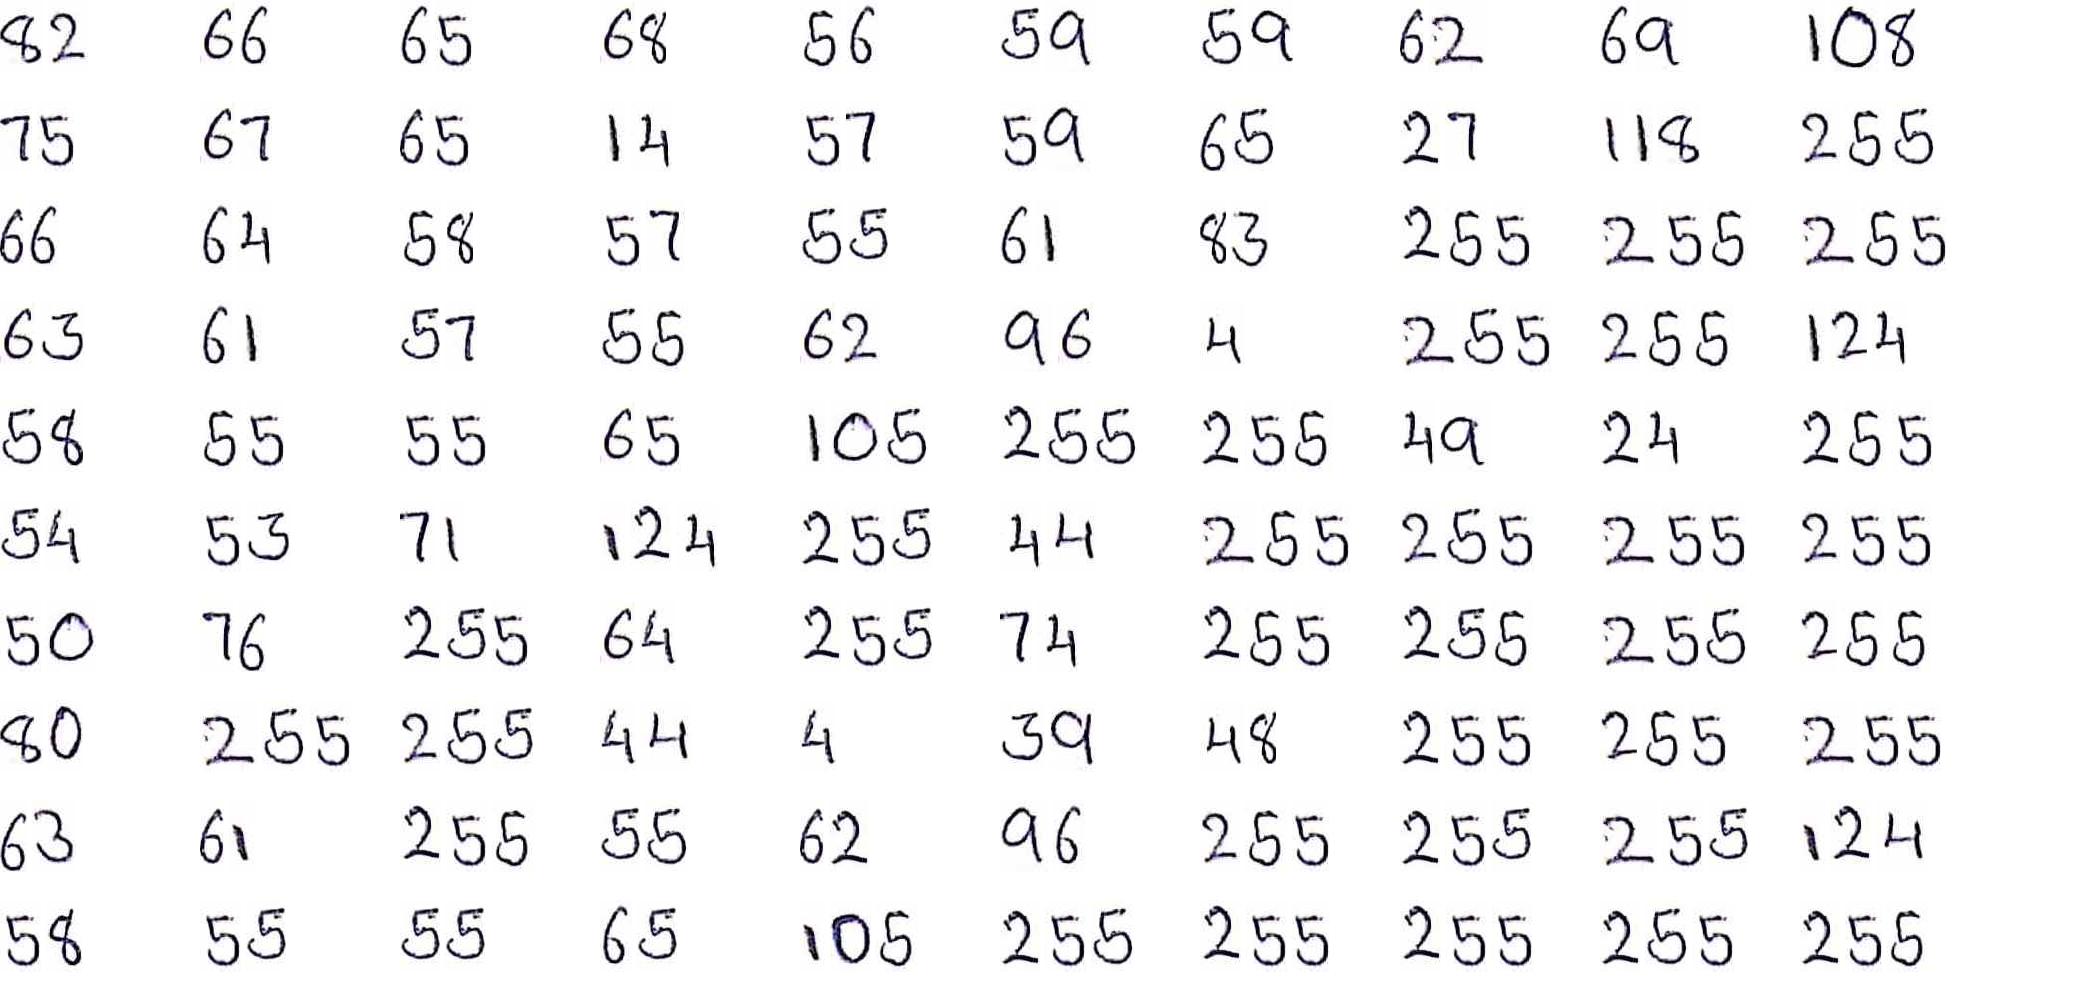 82 66 65 68 56 59 59 62 69 108
75 67 65 14 57 59 65 27 118 255
66 64 58 57 55 61 83 255 255 255
63 61 57 55 62 96 4 255 255 124
58 55 55 65 105 255 255 49 24 255
54 53 71 124 255 44 255 255 255 255
50 76 255 64 255 74 255 255 255 255
80 255 255 44 4 39 48 255 255 255
63 61 255 55 62 96 255 255 255 124
58 55 55 65 105 255 255 255 255 255